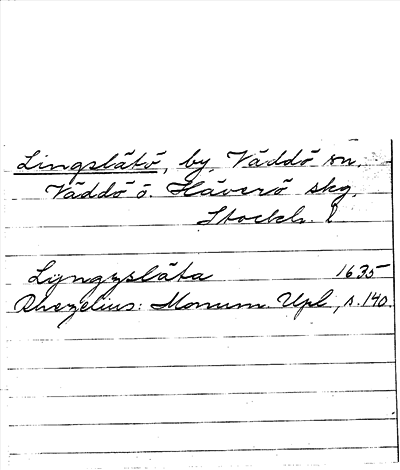 Lingslätö, by, Väddö sn,
Väddö o. Häverö skg,
Stockh. l
Lyngzsläta 1635
Rhezelius: Monum. Upl, s. 140.